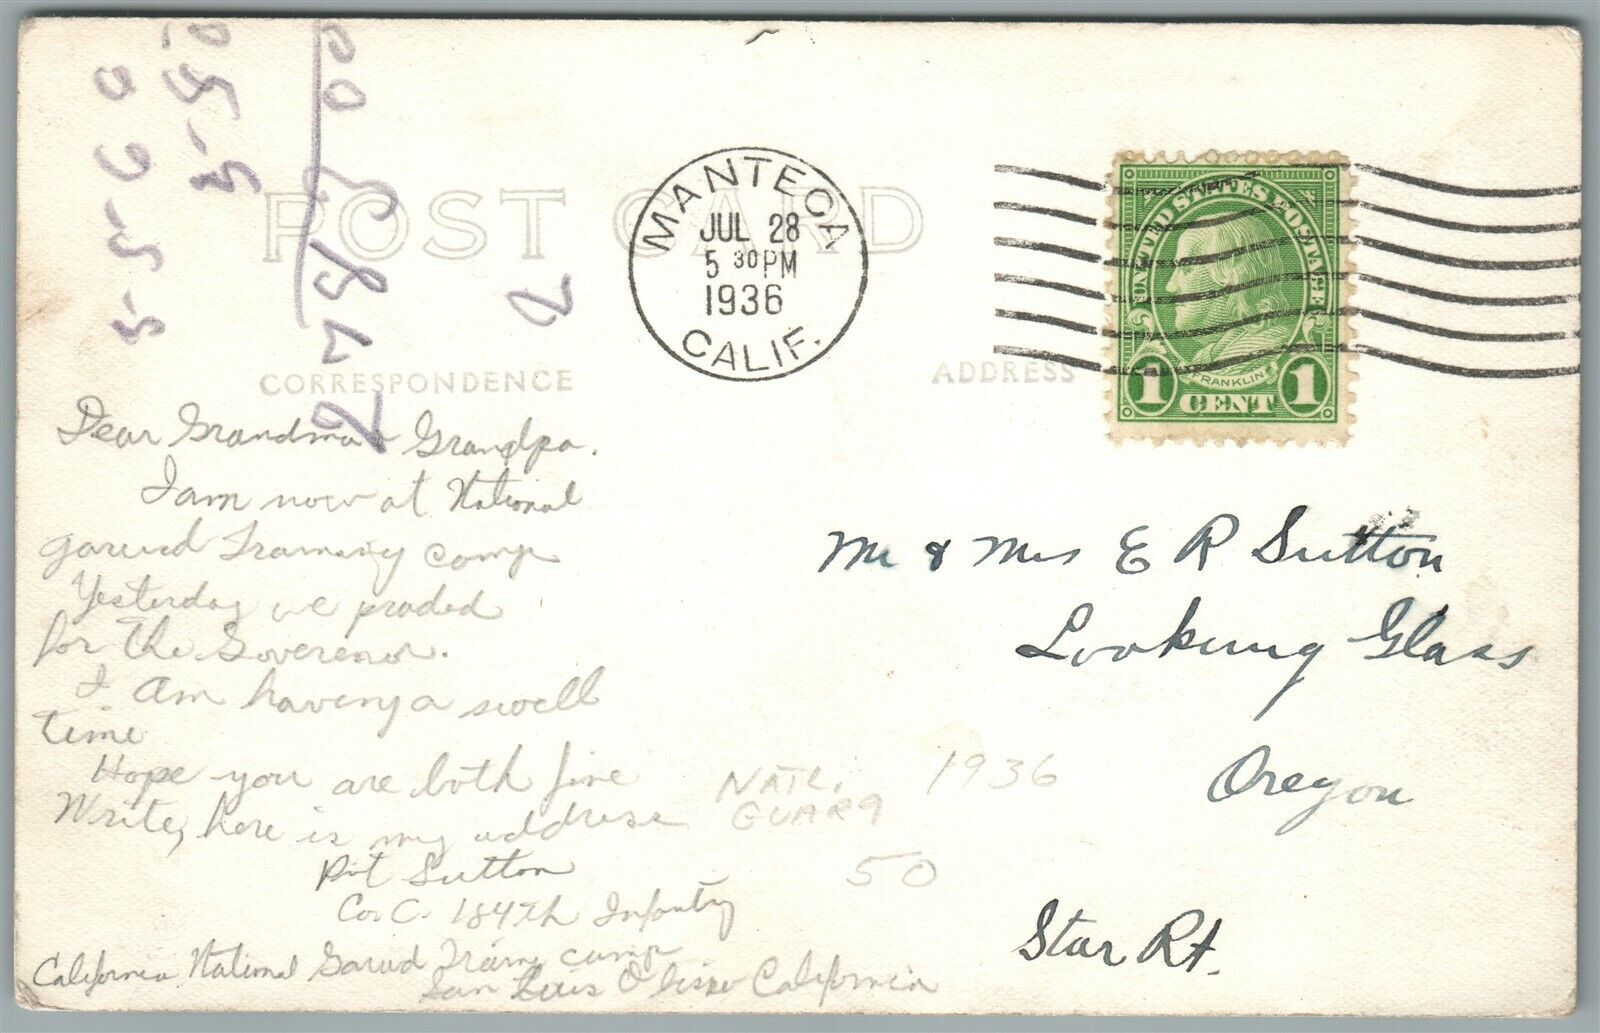 POST CARD
MANTECA
JUL 28
5 30 PM
1936
CALIF.
UNITED STATES POSTAGE
FRANKLIN
1 CENT 1
CORRESPONDENCE
ADDRESS
Dear Grandma & Grandpa.
I am now at National
garurd Traning camp
Yesterday we praded
for the Goverenor.
I Am having a swell
time
Hope you are both fine
Write, here is my address
Pvt Sutton
Co. C. 184th Infantry
California National Garud Train camp
San Luis Obispo California
NATL. 1936
GUARD
50
Mr & Mrs E R Sutton
Looking Glass
Oregon
Star Rt.